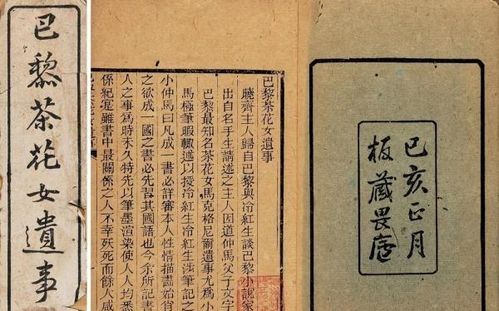 巴黎茶花女遺事
巴黎茶花女遺事
曉齋主人歸自巴黎與冷紅生談巴黎小說家
出自名手生請述之主人因道仲馬父子文字
巴黎最知名茶花女馬克格尼爾遺事尤爲小
馬極筆暇輙述以授冷紅生冷紅生涉筆記之
小仲馬曰凡成一書必詳審本人性情描畫始肖
之欲成一國之書必先習其國語也今余所記書
人之事爲時未久特先以筆墨渲染使人人均悉
係紀實雖書中最關係之人不幸殀死而餘人咸
己亥正月
板藏畏廬